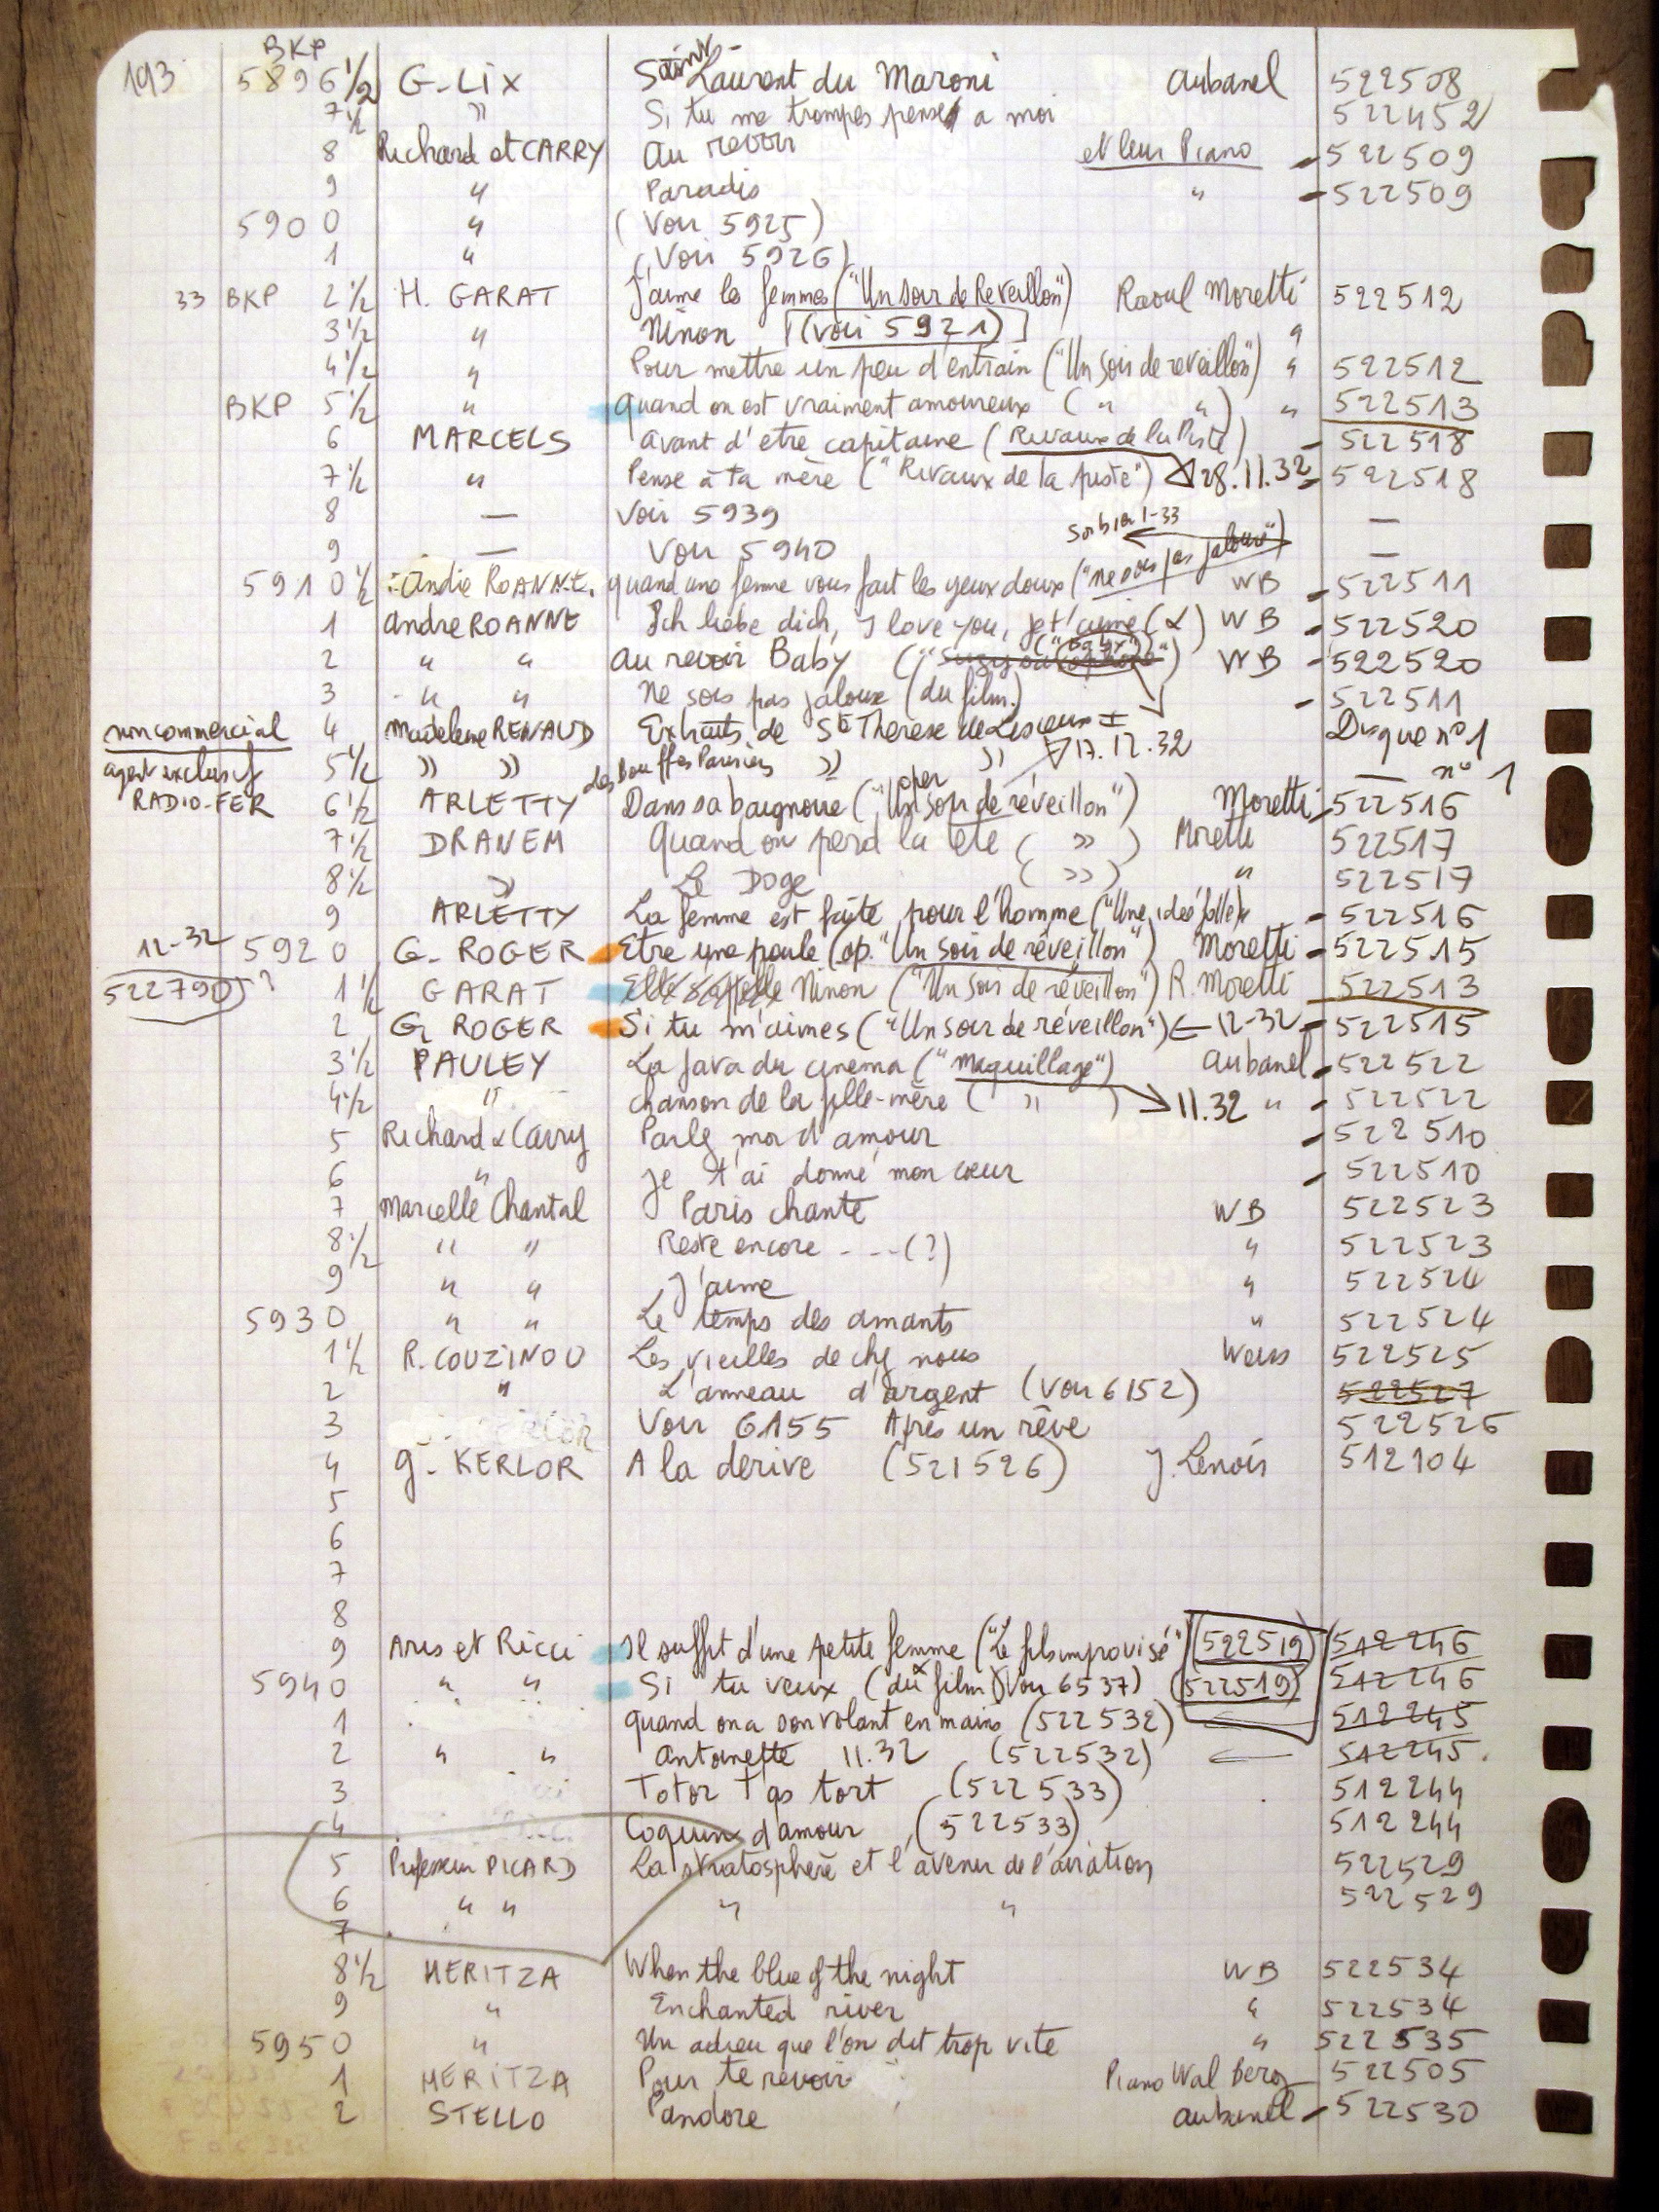 BKP
193 5896 1/2 G. LIX Saint-Laurent du Maroni Aubanel 522508
7 1/2 " Si tu me trompes pense a moi 522452
8 Richard et CARRY Au revoir et leur Piano 522509
9 " Paradis " 522509
5900 " (Voir 5925)
1 " (Voir 5926)
33 BKP 2 1/2 H. GARAT J'aime les femmes ("Un soir de Reveillon") Raoul Moretti 522512
3 1/2 " Ninon [(voir 5921)] "
4 1/2 " Pour mettre un peu d'entrain ("Un soir de reveillon") " 522512
BKP 5 1/2 " Quand on est vraiment amoureux ( " " ) " 522513
6 MARCELS avant d'etre capitaine (Rivaux de la Piste) 522518
7 1/2 " Pense à ta mère ("Rivaux de la piste") 28.11.32 522518
8 — Voir 5939 —
9 — Voir 5940 —
Sorbier 1-33
5910 1/2 André ROANNE. quand une femme vous fait les yeux doux ("ne sois pas jaloux") WB 522511
1 André ROANNE Ich liebe dich, I love you, je t'aime (&) WB 522520
2 " " Au revoir Baby ("Baby") WB 522520
3 " " Ne sois pas jaloux (du film.) 522511
non commercial 4 Madeleine RENAUD Extraits de Ste Therese de Lisieux I Disque n° 1
agent exclusif 5 1/2 " " des Bouffes Parisiens " " 17.12.32 — n° 1
RADIO-FER 6 1/2 ARLETTY Dans sa baignoire (oper "Un soir de réveillon") Moretti 522516
7 1/2 DRANEM Quand on perd la tête ( " ) Moretti 522517
8 1/2 " Le Doge ( " ) " 522517
9 ARLETTY La femme est faite pour l'homme ("Une idée folle") 522516
12-32 5920 G. ROGER Etre une poule (op. "Un soir de réveillon") Moretti 522515
522790)? 1 1/2 GARAT Elle s'appelle Ninon ("Un soir de réveillon") R. Moretti 522513
2 G. ROGER Si tu m'aimes ("Un soir de réveillon") ← 12-32 522515
3 1/2 PAULEY La Java du cinema ("Maquillage") Aubanel 522522
4 1/2 " chanson de la fille-mère ( " ) 11.32 " 522522
5 Richard & Carry Parlez moi d'amour 522510
6 " Je t'ai donné mon cœur 522510
7 Marcelle Chantal Paris chante WB 522523
8 1/2 " " Reste encore ....(?) " 522523
9 " " J'aime " 522524
5930 " " Le temps des amants " 522524
1 1/2 R. COUZINOU Les vieilles de chez nous Weiss 522525
2 " L'anneau d'argent (Voir 6152) 522527
3 Voir 6155 Après un rêve 522526
4 G. KERLOR A la derive (521526) J. Lenoir 512104
5
6
7
8
9 Aris et Ricci Il suffit d'une petite femme ("Le fils improvisé") (522519) 512246
5940 " " Si tu veux (du film) (Voir 6537) (522519) 512246
1 quand on a son volant en mains (522532) ← 512245
2 " " Antoinette 11.32 (522532) ← 512245
3 Totor t'as tort (522533) 512244
4 Coquin d'amour (522533) 512244
5 Professeur PICARD La stratosphère et l'avenir de l'aviation 522529
6 " " " " 522529
7
8 1/2 MERITZA When the blue of the night WB 522534
9 " Enchanted river " 522534
5950 " Un adieu que l'on dit trop vite " 522535
1 MERITZA Pour te revoir Piano Wal Berg 522505
2 STELLO Pandore Aubanel 522530